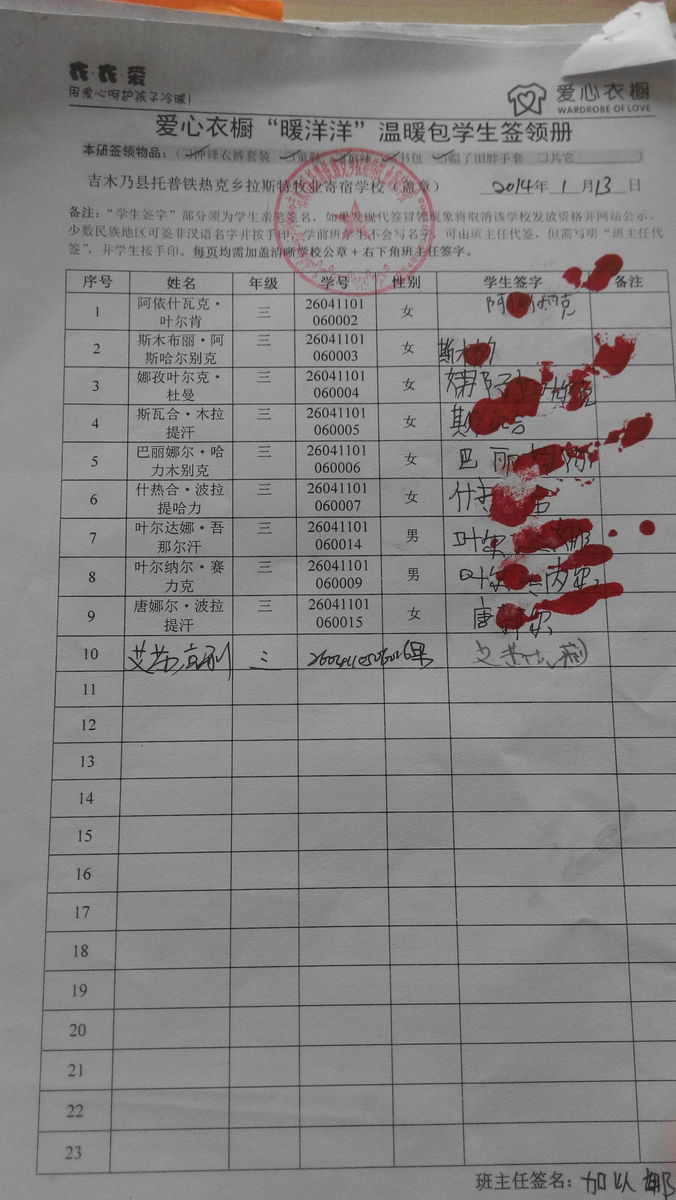 衣·衣·爱
用爱心呵护孩子冷暖!
爱心衣橱
WARDROBE OF LOVE
爱心衣橱“暖洋洋”温暖包学生签领册
本研签领物品:(☑冲锋衣裤套装 ☑童鞋 ☑ ☑书包 ☑帽子围脖手套 ☐其它 )
吉木乃县托普铁热克乡拉斯特牧业寄宿学校(盖章) 2014年 1 月 13 日
备注:“学生签字”部分须为学生亲笔签名,如果发现代签冒领现象将取消该学校发放资格并网站公示。
少数民族地区可签非汉语名字并按手印,学前班学生不会写名字,可由班主任代签,但需写明“班主任代
签”,并学生按手印。每页均需加盖清晰学校公章+右下角班主任签字。
序号 姓名 年级 学号 性别 学生签字 备注
1 阿依什瓦克·叶尔肯 三 26041101060002 女
2 斯木布丽·阿斯哈尔别克 三 26041101060003 女 斯木
3 娜孜叶尔克·杜曼 三 26041101060004 女
4 斯瓦合·木拉提汗 三 26041101060005 女 斯
5 巴丽娜尔·哈力木别克 三 26041101060006 女 巴丽
6 什热合·波拉提哈力 三 26041101060007 女 什
7 叶尔达娜·吾那尔汗 三 26041101060014 男 叶尔 娜
8 叶尔纳尔·赛力克 三 26041101060009 男 叶尔
9 唐娜尔·波拉提汗 三 26041101060015 女 唐 尔
10 三
11
12
13
14
15
16
17
18
19
20
21
22
23
班主任签名: 加以娜